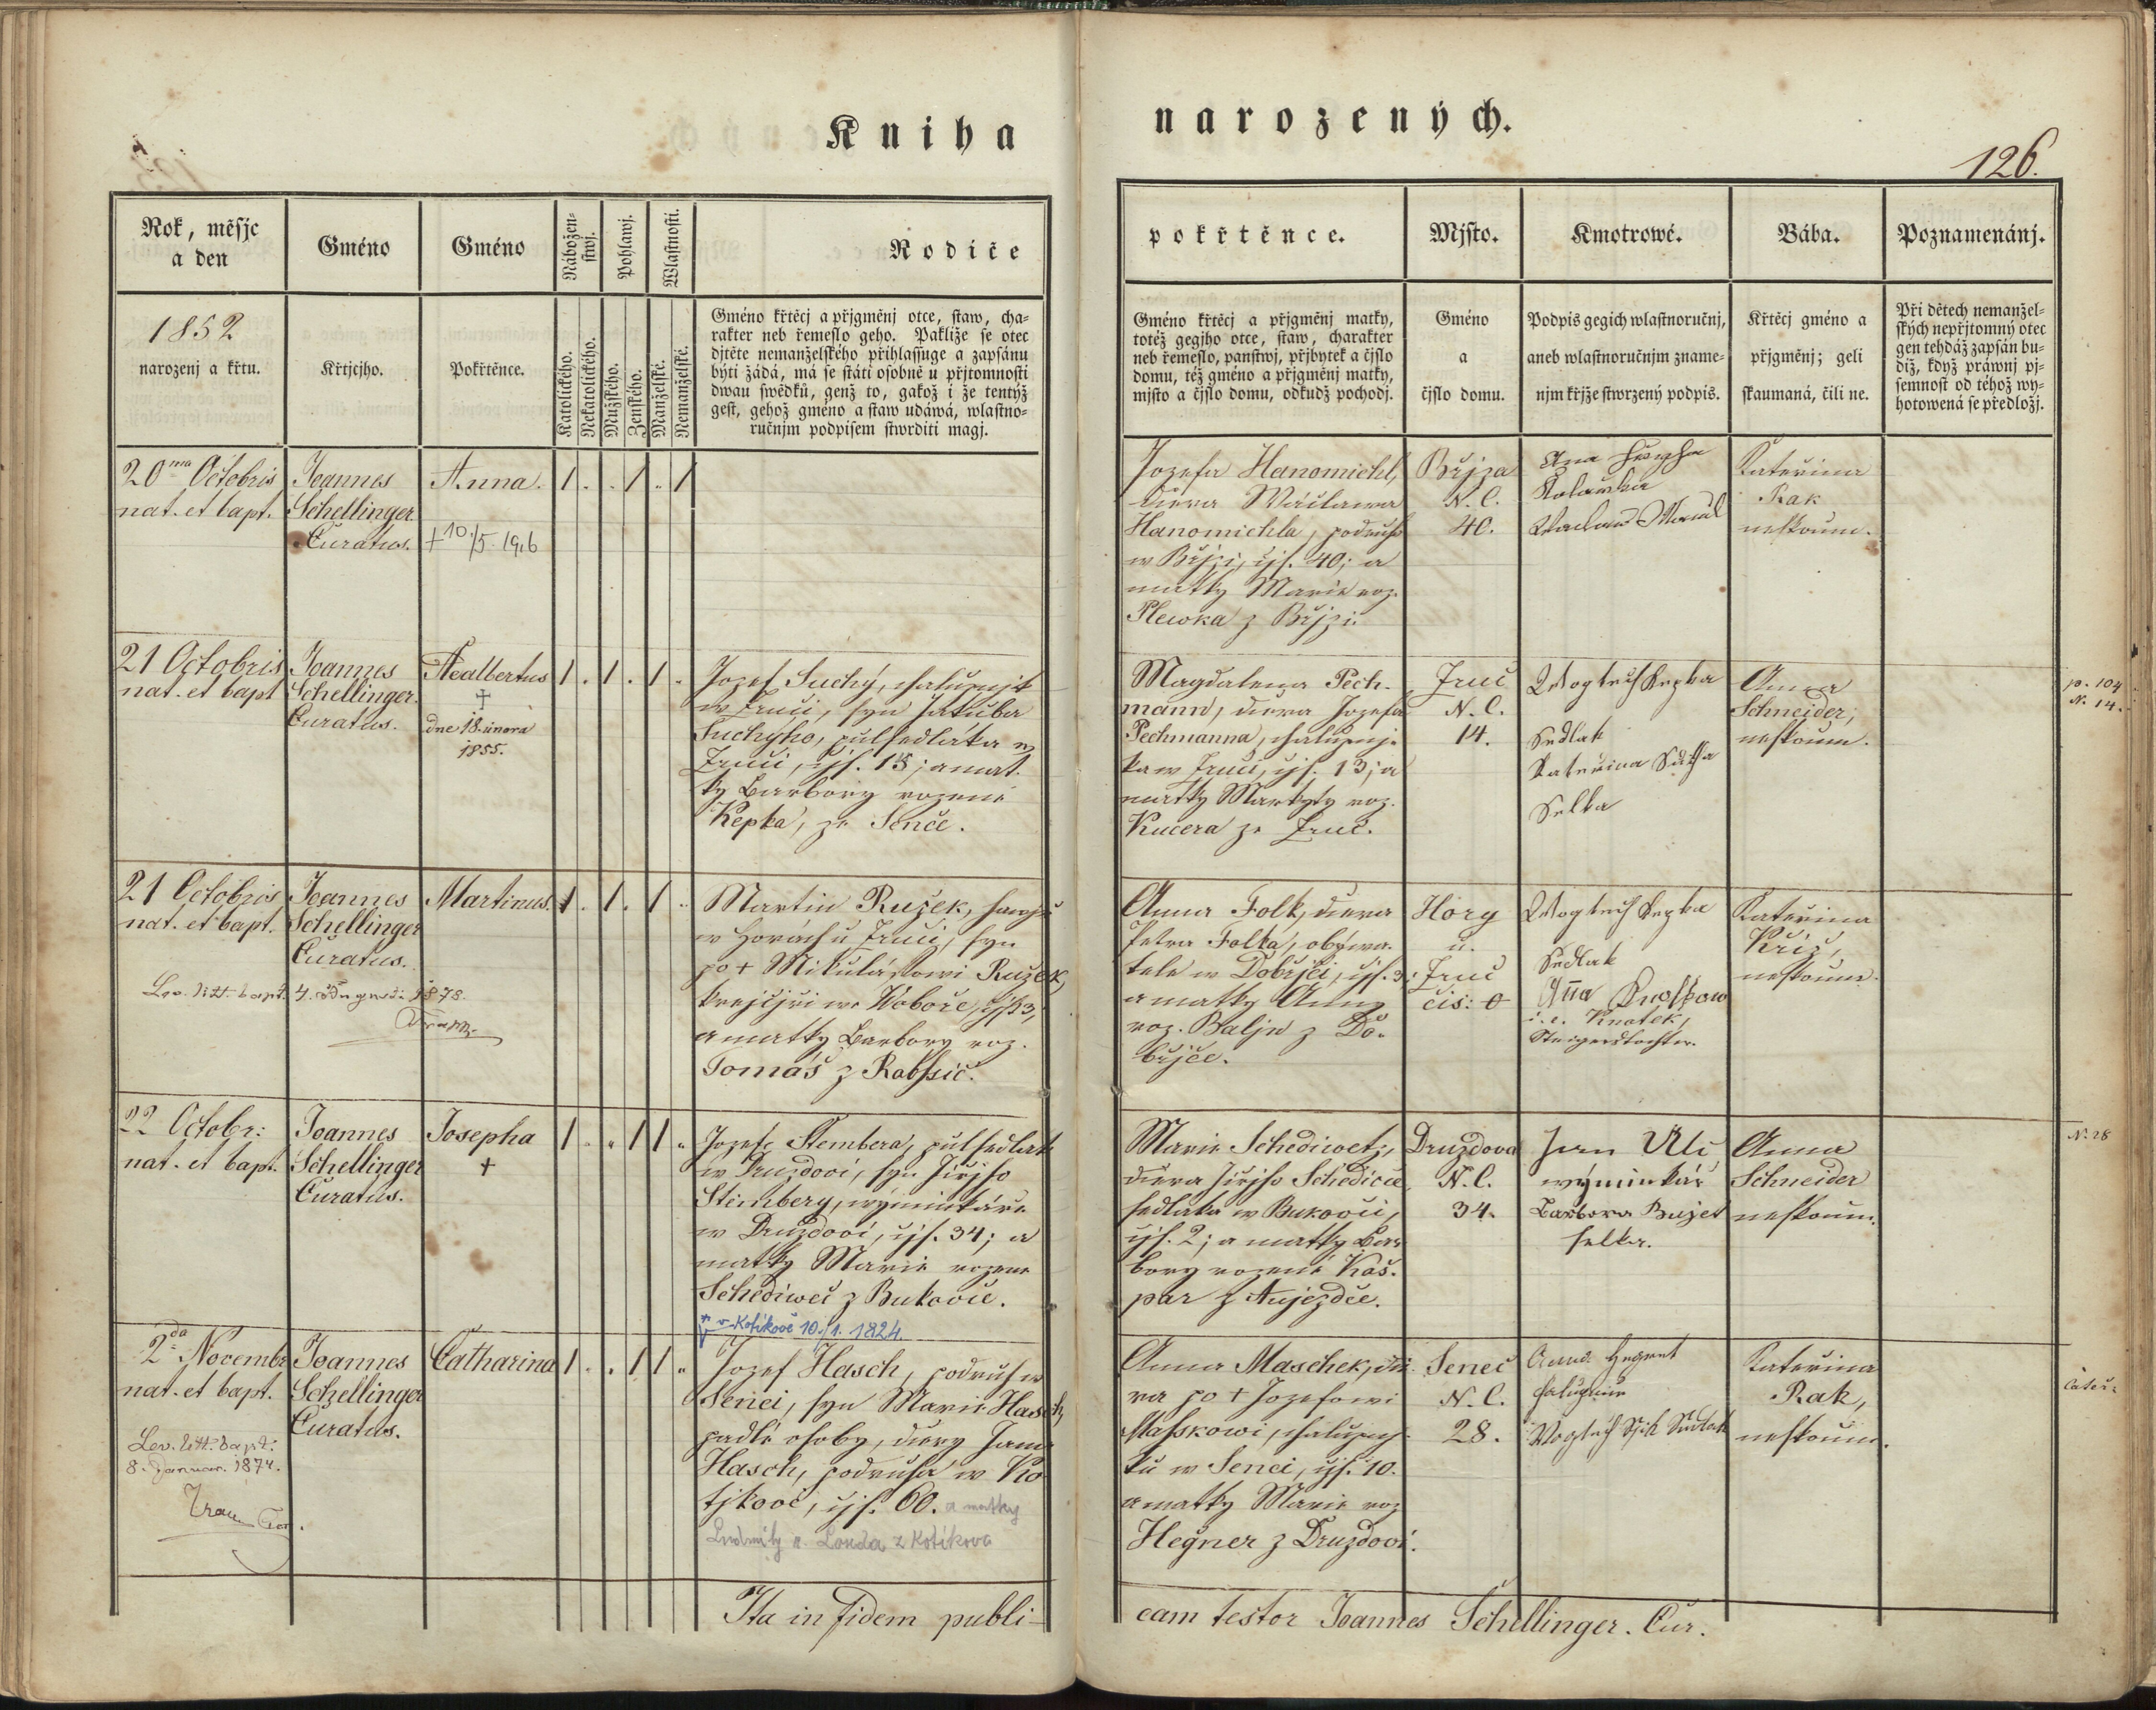 Kniha
narozených.
126.
Rok, měsjc
a den
1852
narozenj a křtu.
Gméno
Křtjcjho.
Gméno
Pokřtěnce.
Nábožen-
stwj.
Katolického.
Nekatolického.
Pohlawj.
Mužského.
Ženského.
Wlastnosti.
Manželské.
Nemanželské.
Rodiče
Gméno křtěcj a přjgměnj otce, staw, cha-
rakter neb řemeslo geho. Pakliže se otec
djtěte nemanželského přihlassuge a zapsánu
býti žádá, má se státi osobně u přjtomnosti
dwau swědků, genž to, gakož i že tentýž
gest, gehož gméno a staw udáwá, wlastno-
ručnjm podpisem stwrditi magj.
pokřtěnce.
Gméno křtěcj a přjgměnj matky,
totéž gegjho otce, staw, charakter
neb řemeslo, panstwj, přjbytek a čjslo
domu, též gméno a přjgměnj matky,
mjsto a čjslo domu, odkudž pochodj.
Mjsto.
Gméno
a
čjslo domu.
Kmotrowé.
Podpis gegich wlastnoručnj,
aneb wlastnoručnjm zname-
njm křjže stwrzený podpis.
Bába.
Křtěcj gméno a
přjgměnj; geli
skaumaná, čili ne.
Poznamenánj.
Při dětech nemanžel-
ských nepřjtomný otec
gen tehdáž zapsán bu-
diž, když práwnj pj-
semnost od téhož wy-
hotowená se předložj.
20ma Octobris
nat. et bapt.
Joannes
Schellinger
Curatus.
Anna.
+ 10./5. 1916
1 . . 1 . 1
Jozefa Hanomichl,
dcera Wáclawa
Hanomichla, podruha
w Břjzi, čjs. 40; a
matky Marie roz.
Plewka z Břjzi.
Břjza
N. C.
40.
Kateřina
Rak
neskoum.
21 Octobris
nat. et bapt
Joannes
Schellinger.
Curatus.
Adalbertus
+
dne 18. února
1855.
1 . 1 . 1 .
Jozef Suchý, chalupnjk
w Zruči, syn Jakuba
Suchýho, půlsedláka w
Zruči, čjs. 15; a mat-
ky Barbory rozené
Kepka, ze Senče.
Magdalena Pech-
mann, dcera Jozefa
Pechmanna, chalupnj-
ka w Zruči, čjs. 13; a
matky Markyty roz.
Kucera ze Zruč.
Zruč
N. C.
14.
Wogtech Kepka
Sedlak
Kateřina
Selka
Anna
Schneider,
neskoum.
p. 104
N. 14.
21 Octobris
nat. et bapt.
Joannes
Schellinger
Curatus.
Martinus.
1 . 1 . 1 .
Lev. litt. bapt. 4.
1878.
Martin Ružek,
w Horách u Zruči, syn
po + Mikulášowi Ružek,
krejčjři we Woboře, čjs 3,
a matky Barbory roz.
Tomáš z Rabssic.
Anna Folk, dcera
Petra Folka, obýwa-
tele w Dobřjči, čjs. 3;
a matky Anny
roz. Baljn z Do-
břjče.
Hory
u.
Zruč
čis: 0
Wogtech Kepka
Sedlak
Anna
i. e. Knotek,
Steigerstochter.
Kateřina
Křiž,
neskoum.
22 Octobr:
nat. et bapt.
Joannes
Schellinger
Curatus.
Josepha
+
1 . . 1 1 .
Jozef Stembera, půlsedlák
w Druzdovi, syn Jiřjho
Stembery, wýminkáře
w Druzdovi, čjs. 34; a
matky Marie rozene
Schediwec z Bukovic.
Marie Schediwetz,
dcera Jiřjho Schediwce
sedláka w Bukovci,
čjs. 2; a matky Bar-
bory rozené Kaš-
par z Aujezdce.
Druzdova
N. C.
34.
Jan Uli
wýminkář
Barbora Bujet
selka.
Anna
Schneider
neskoum.
N. 28
* v Kotíkově 10./1. 1824.
2da Novembr
nat. et bapt.
Joannes
Schellinger
Curatus.
Catharina
1 . . 1 1 .
Lev. litt. bapt:
8. Januar. 1874.
Jozef Hasch, podruh w
Senci, syn Marie Hasch,
padlé osoby, dcery Jana
Hasch, podruha w Ko-
tjkově, čjs. 60. a matky
Ludmily r. Louda z Kotíkova
Anna Maschek, dce-
ra po + Jozefowi
Masskowi, chalupnj-
ku w Senci, čjs. 10.
a matky Marie roz
Hegner z Druzdovi.
Senec
N. C.
28.
Kateřina
Rak,
neskoum.
Ita in fidem publi-
cam testor Joannes Schellinger. Cur.